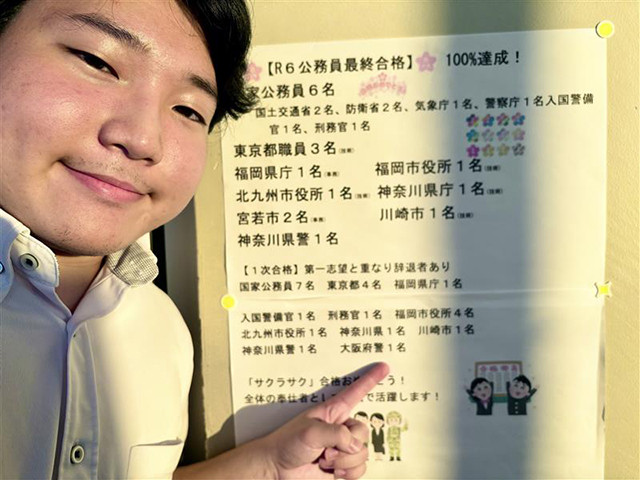 【R６公務員最終合格】 100%達成！
家公務員６名
国土交通省２名、防衛省２名、気象庁１名、警察庁１名入国警備
官１名、刑務官１名
東京都職員３名(技術)
福岡県庁１名(事務) 福岡市役所１名(技術)
北九州市役所１名(技術) 神奈川県庁１名(技術)
宮若市２名(事務) 川崎市１名(技術)
神奈川県警１名
【１次合格】第一志望と重なり辞退者あり
国家公務員７名 東京都４名 福岡県庁１名
入国警備官１名 刑務官１名 福岡市役所４名
北九州市役所１名 神奈川県１名 川崎市１名
神奈川県警１名 大阪府警１名
「サクラサク」合格お う！
全体の奉仕者とし で活躍します！